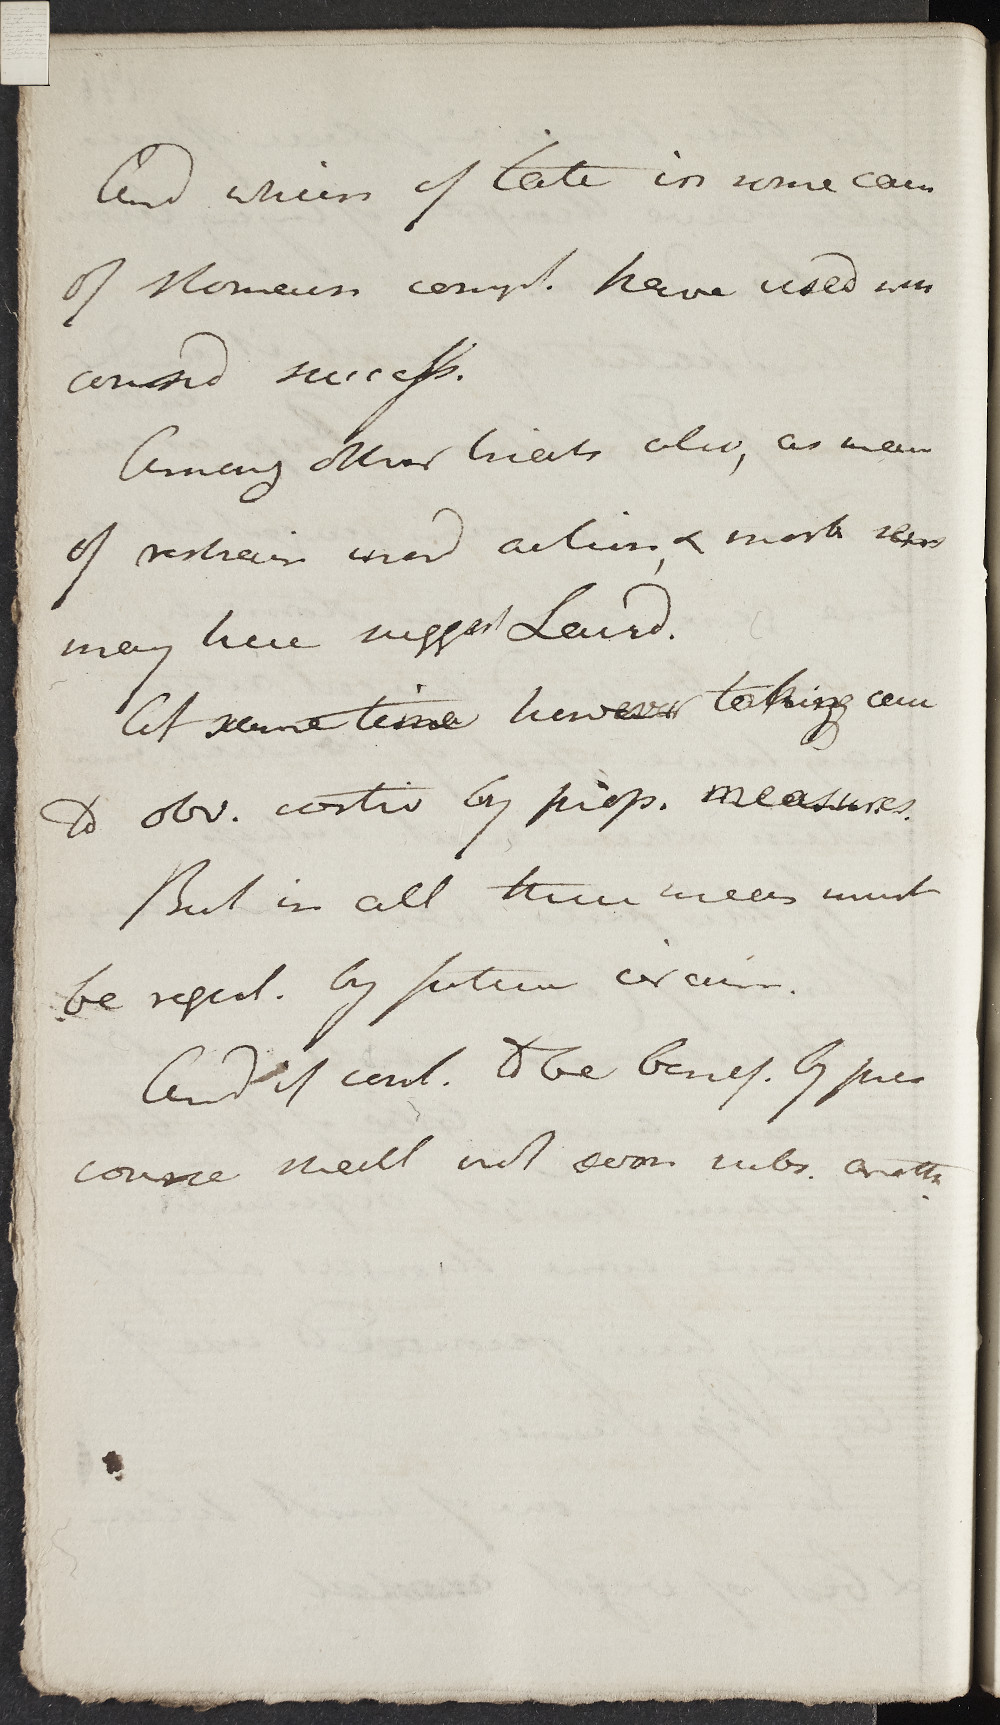 And which of late in some cases
of Stomach compl. have used with
consid success.
Among other hints also, as mean
of restrain inord action, & morb sens
may here suggest Laud.
At same time however taking care
to obv. costiv by prop. measures.
But in all these meas must
be regul. by future circum.
And if cont. to be benef. by pres
course shall not soon subs. anoth